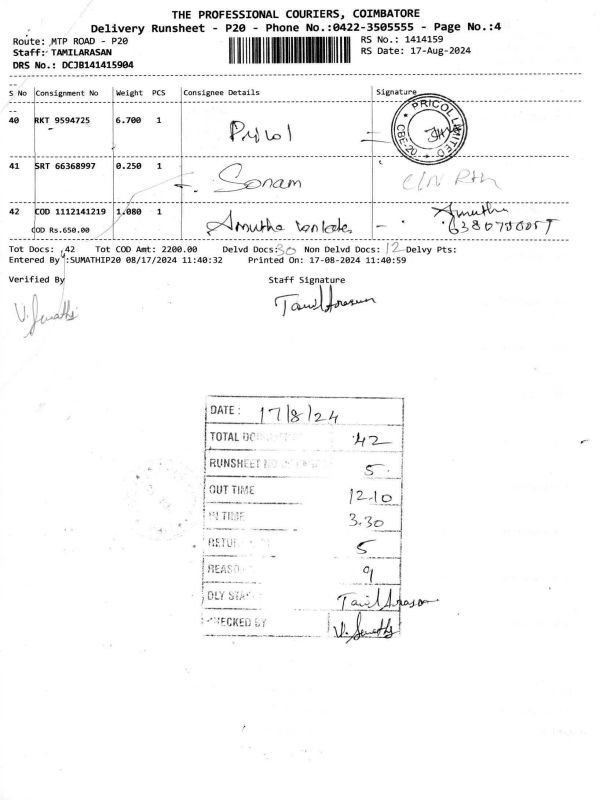 THE PROFESSIONAL COURIERS, COIMBATORE
Delivery Runsheet - P20 - Phone No.:0422-3505555 - Page No.:4
Route: MTP ROAD - P20
RS No.: 1414159
Staff: TAMILARASAN
RS Date: 17-Aug-2024
DRS No.: DCJB141415904
S No Consignment No Weight PCS Consignee Details Signature
40 RKT 9594725 6.700 1 Pricol
PRICOL LIMITED CBE-20
41 SRT 66368997 0.250 1 Sonam
42 COD 1112141219 1.080 1 Amutha Amutha
COD Rs.650.00
Tot Docs: 42 Tot COD Amt: 2200.00 Delvd Docs: 30 Non Delvd Docs: 12 Delvy Pts:
Entered By :SUMATHIP20 08/17/2024 11:40:32 Printed On: 17-08-2024 11:40:59
Verified By Staff Signature
V. Sumathi Tamilarasan
DATE : 17/8/24
TOTAL 42
RUNSHEET NO 5
OUT TIME 12.10
IN TIME 3.30
5
9
DLY Tamilarasan
CHECKED BY V. Sumathi